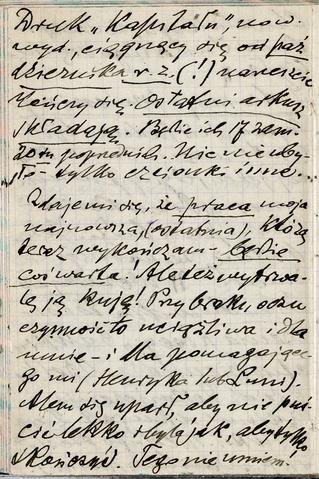 Druk „Kapitału”, now.
wyd., ciągnący się od paź
dziernika r. z. (!) nareszcie
kończy się. Ostatni arkusz
składają. Będzie ich 17 zam.
20tu poprzednich. Nic nie uby-
ło - tylko czcionki inne.
Zdaje mi się, że praca moja
najnowsza, (ostatnia), którą
teraz wykończam - będzie
coś warta! Ale też wytrwa-
le ją kuję! Przy braku oczu
czynność to uciążliwa i dla
mnie - i dla pomagające-
go mi (Henryka lub Luni).
Alem się uparł, aby nie puś-
cić lekko, byle jak, aby tylko
skończyć. Tego nie umiem.